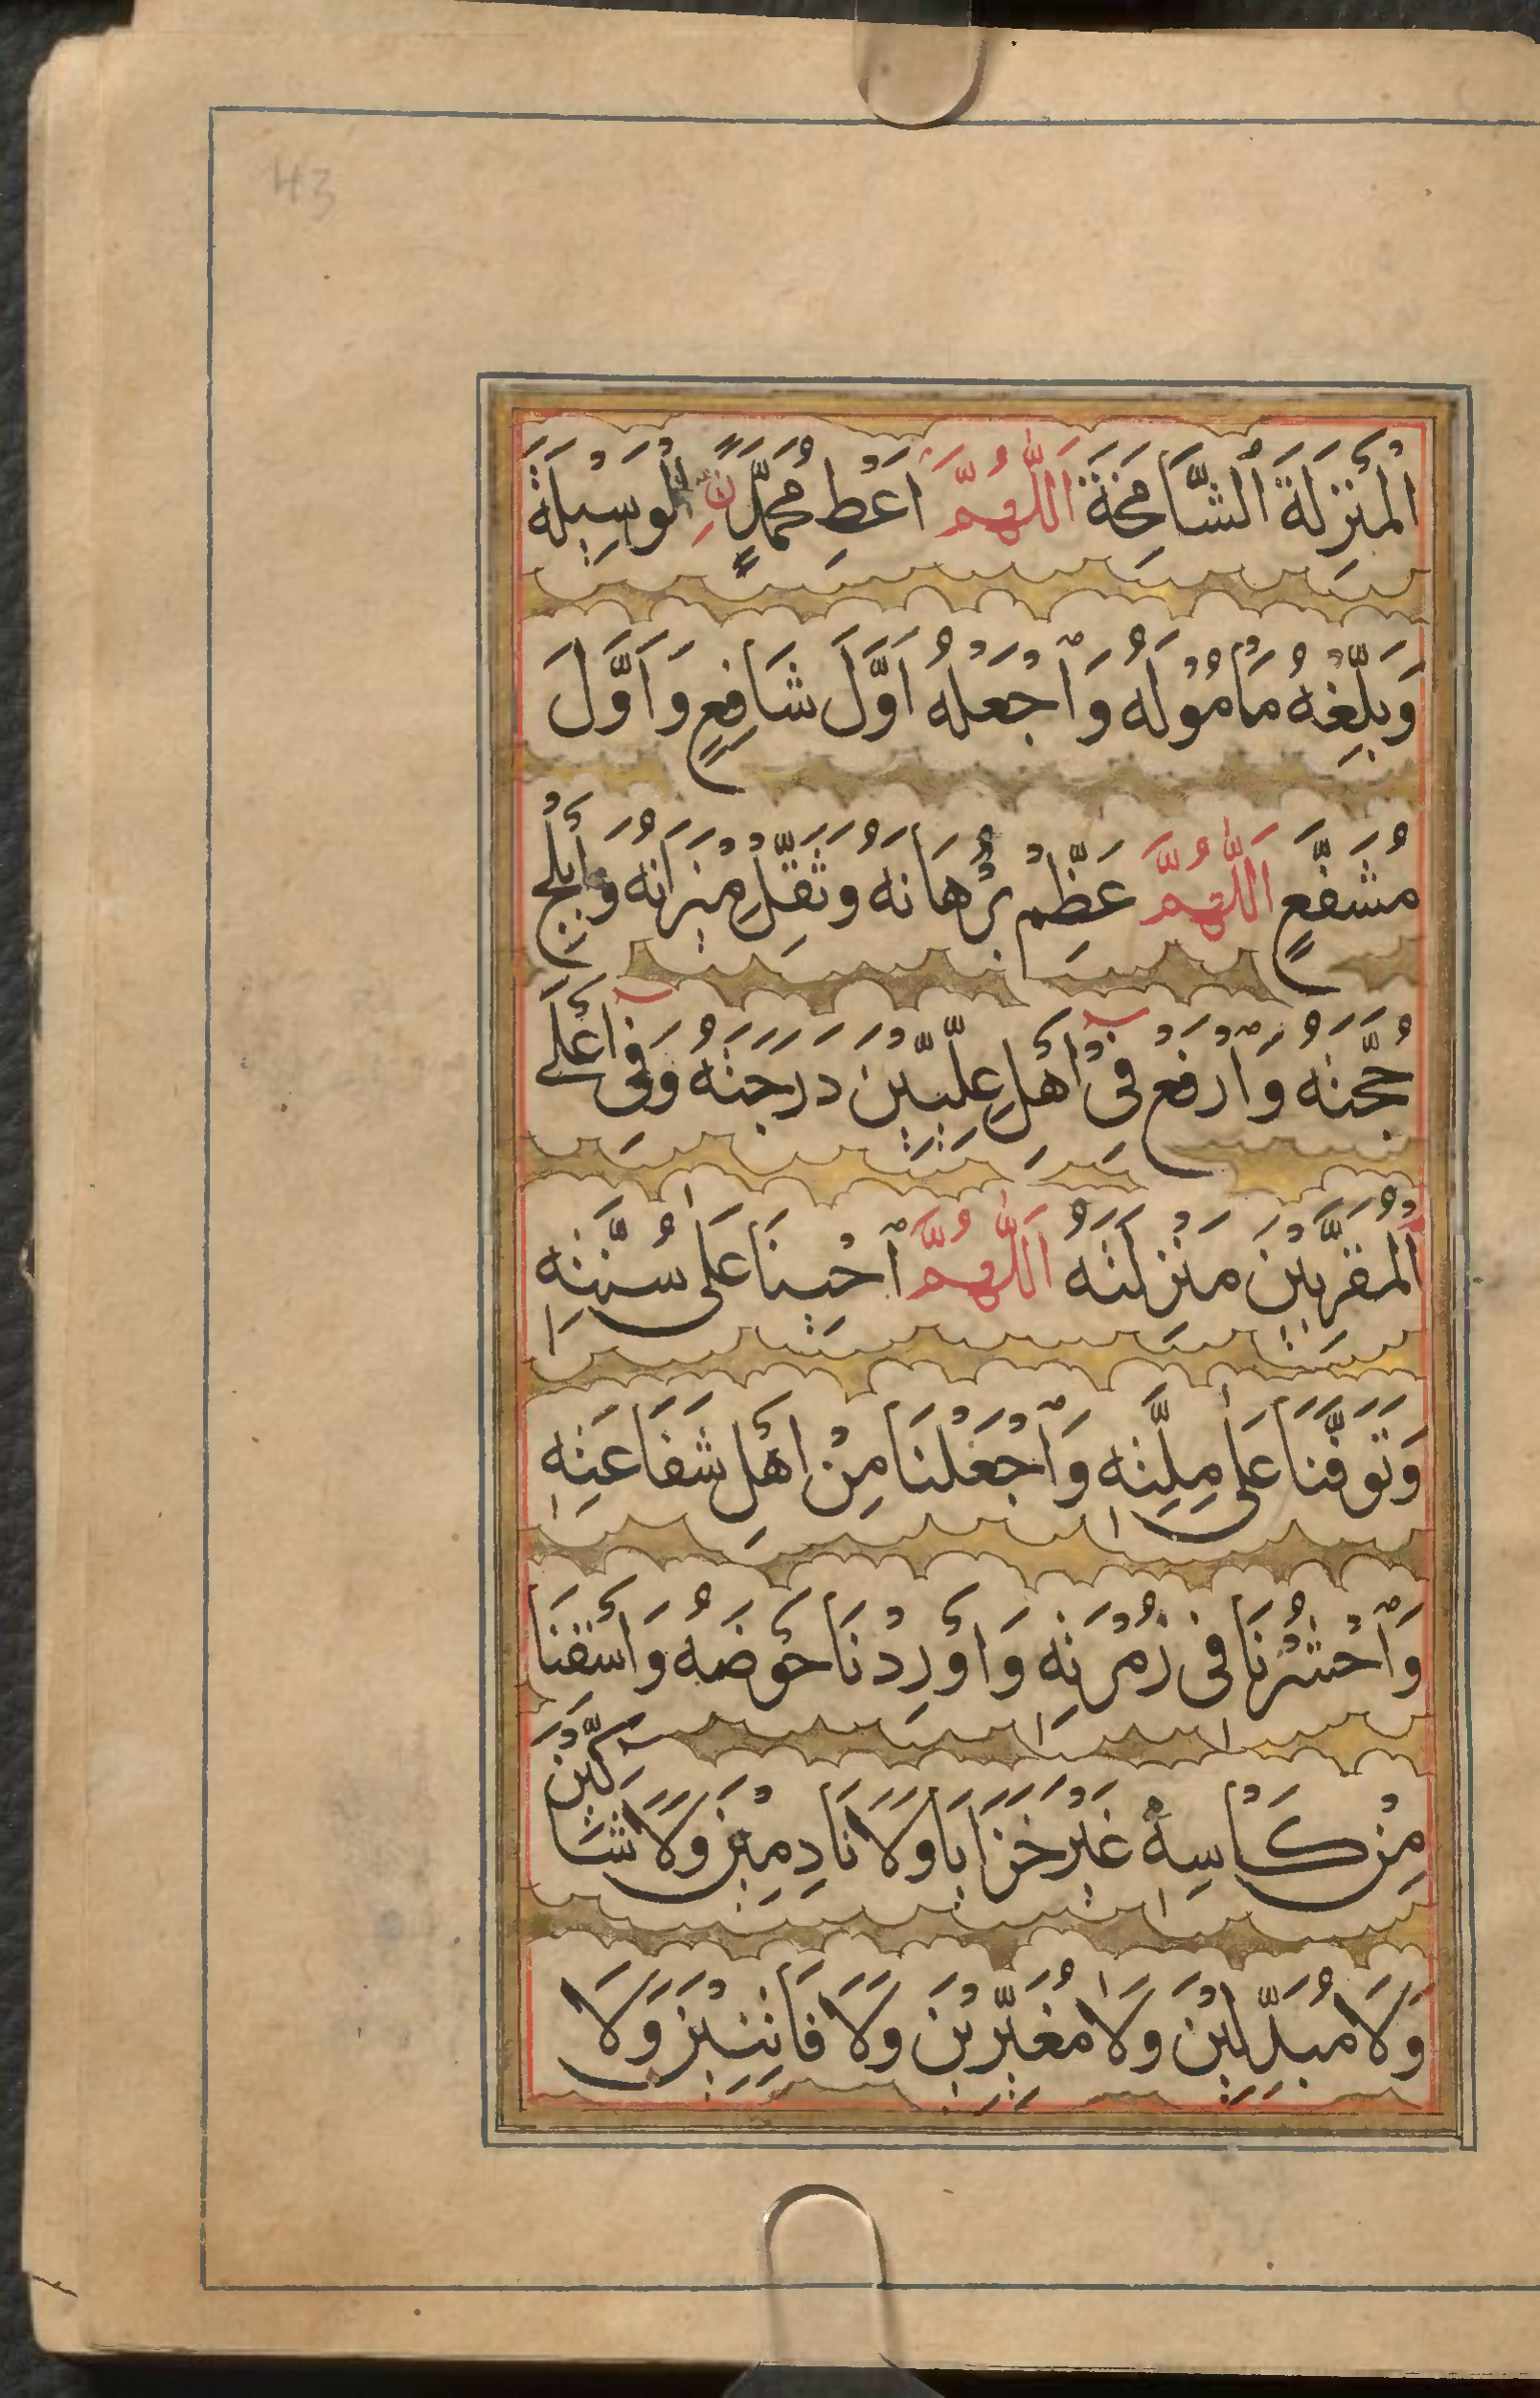 43
الْمَنْزِلَةَ الشَّامِخَةَ اَللّٰهُمَّ اَعْطِ مُحَمَّدًا نِ الْوَسِيْلَةَ
وَبَلِّغْهُ مَأْمُوْلَهُ وَاجْعَلْهُ اَوَّلَ شَافِعٍ وَاَوَّلَ
مُشَفَّعٍ اَللّٰهُمَّ عَظِّمْ بُرْهَانَهُ وَثَقِّلْ مِيْزَانَهُ وَاَبْلِجْ
حُجَّتَهُ وَارْفَعْ فِيْ اَهْلِ عِلِّيِّيْنَ دَرَجَتَهُ وَفِيْ اَعْلَى
الْمُقَرَّبِيْنَ مَنْزِلَتَهُ اَللّٰهُمَّ اَحْيِنَا عَلٰى سُنَّتِهٖ
وَتَوَفَّنَا عَلٰى مِلَّتِهٖ وَاجْعَلْنَا مِنْ اَهْلِ شَفَاعَتِهٖ
وَاحْشُرْنَا فِيْ زُمْرَتِهٖ وَاَوْرِدْنَا حَوْضَهُ وَاَسْقِنَا
مِنْ كَاْسِهٖ غَيْرَ خَزَايَا وَلَا نَادِمِيْنَ وَلَا شَاكِّيْنَ
وَلَا مُبَدِّلِيْنَ وَلَا مُغَيِّرِيْنَ وَلَا فَاتِنِيْنَ وَلَا